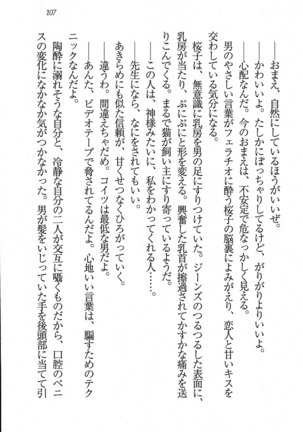 107
――おまえ、自然にしているほうがいいぜ。
かわいいよ。たしかにぽっちゃりしてるけど、がりがりよりいいよ。
――心配なんだ。今のおまえは、不安定で危なっかしく見える。
男のやさしい言葉がフェラチオに酔う桜子の脳裏によみがえり、恋人と甘いキスを
交わしている気分になる。
桜子は、無意識に乳房を男の足にすりつけていた。ジーンズのつるつるした表面に、
乳房が当たって、ぷにぷにと形を変える。興奮した乳首が擦過されてかすかな痛みを送
りこんでくる。まるで子猫が飼い主にすり寄っているようだ。
――この人は、神様みたいに、私をわかってくれる人……。
――先生になら、なにをされても……。
あきらめにも似た信頼が、甘くせつなくひろがっていく。
――違うわ。間違えちゃだめ。コイツは最低な男だよ。
――あんた、ビデオテープで脅されてるんだよ。心地いい言葉は、騙すためのテク
ニックなんだよ。
陶酔に溺れそうな自分と、冷静な自分の二人が交互に囁くものだから、口腔のペニ
スの変化になかなか気がつかなかった。男が髪をいじっていた手を後頭部に当てて引